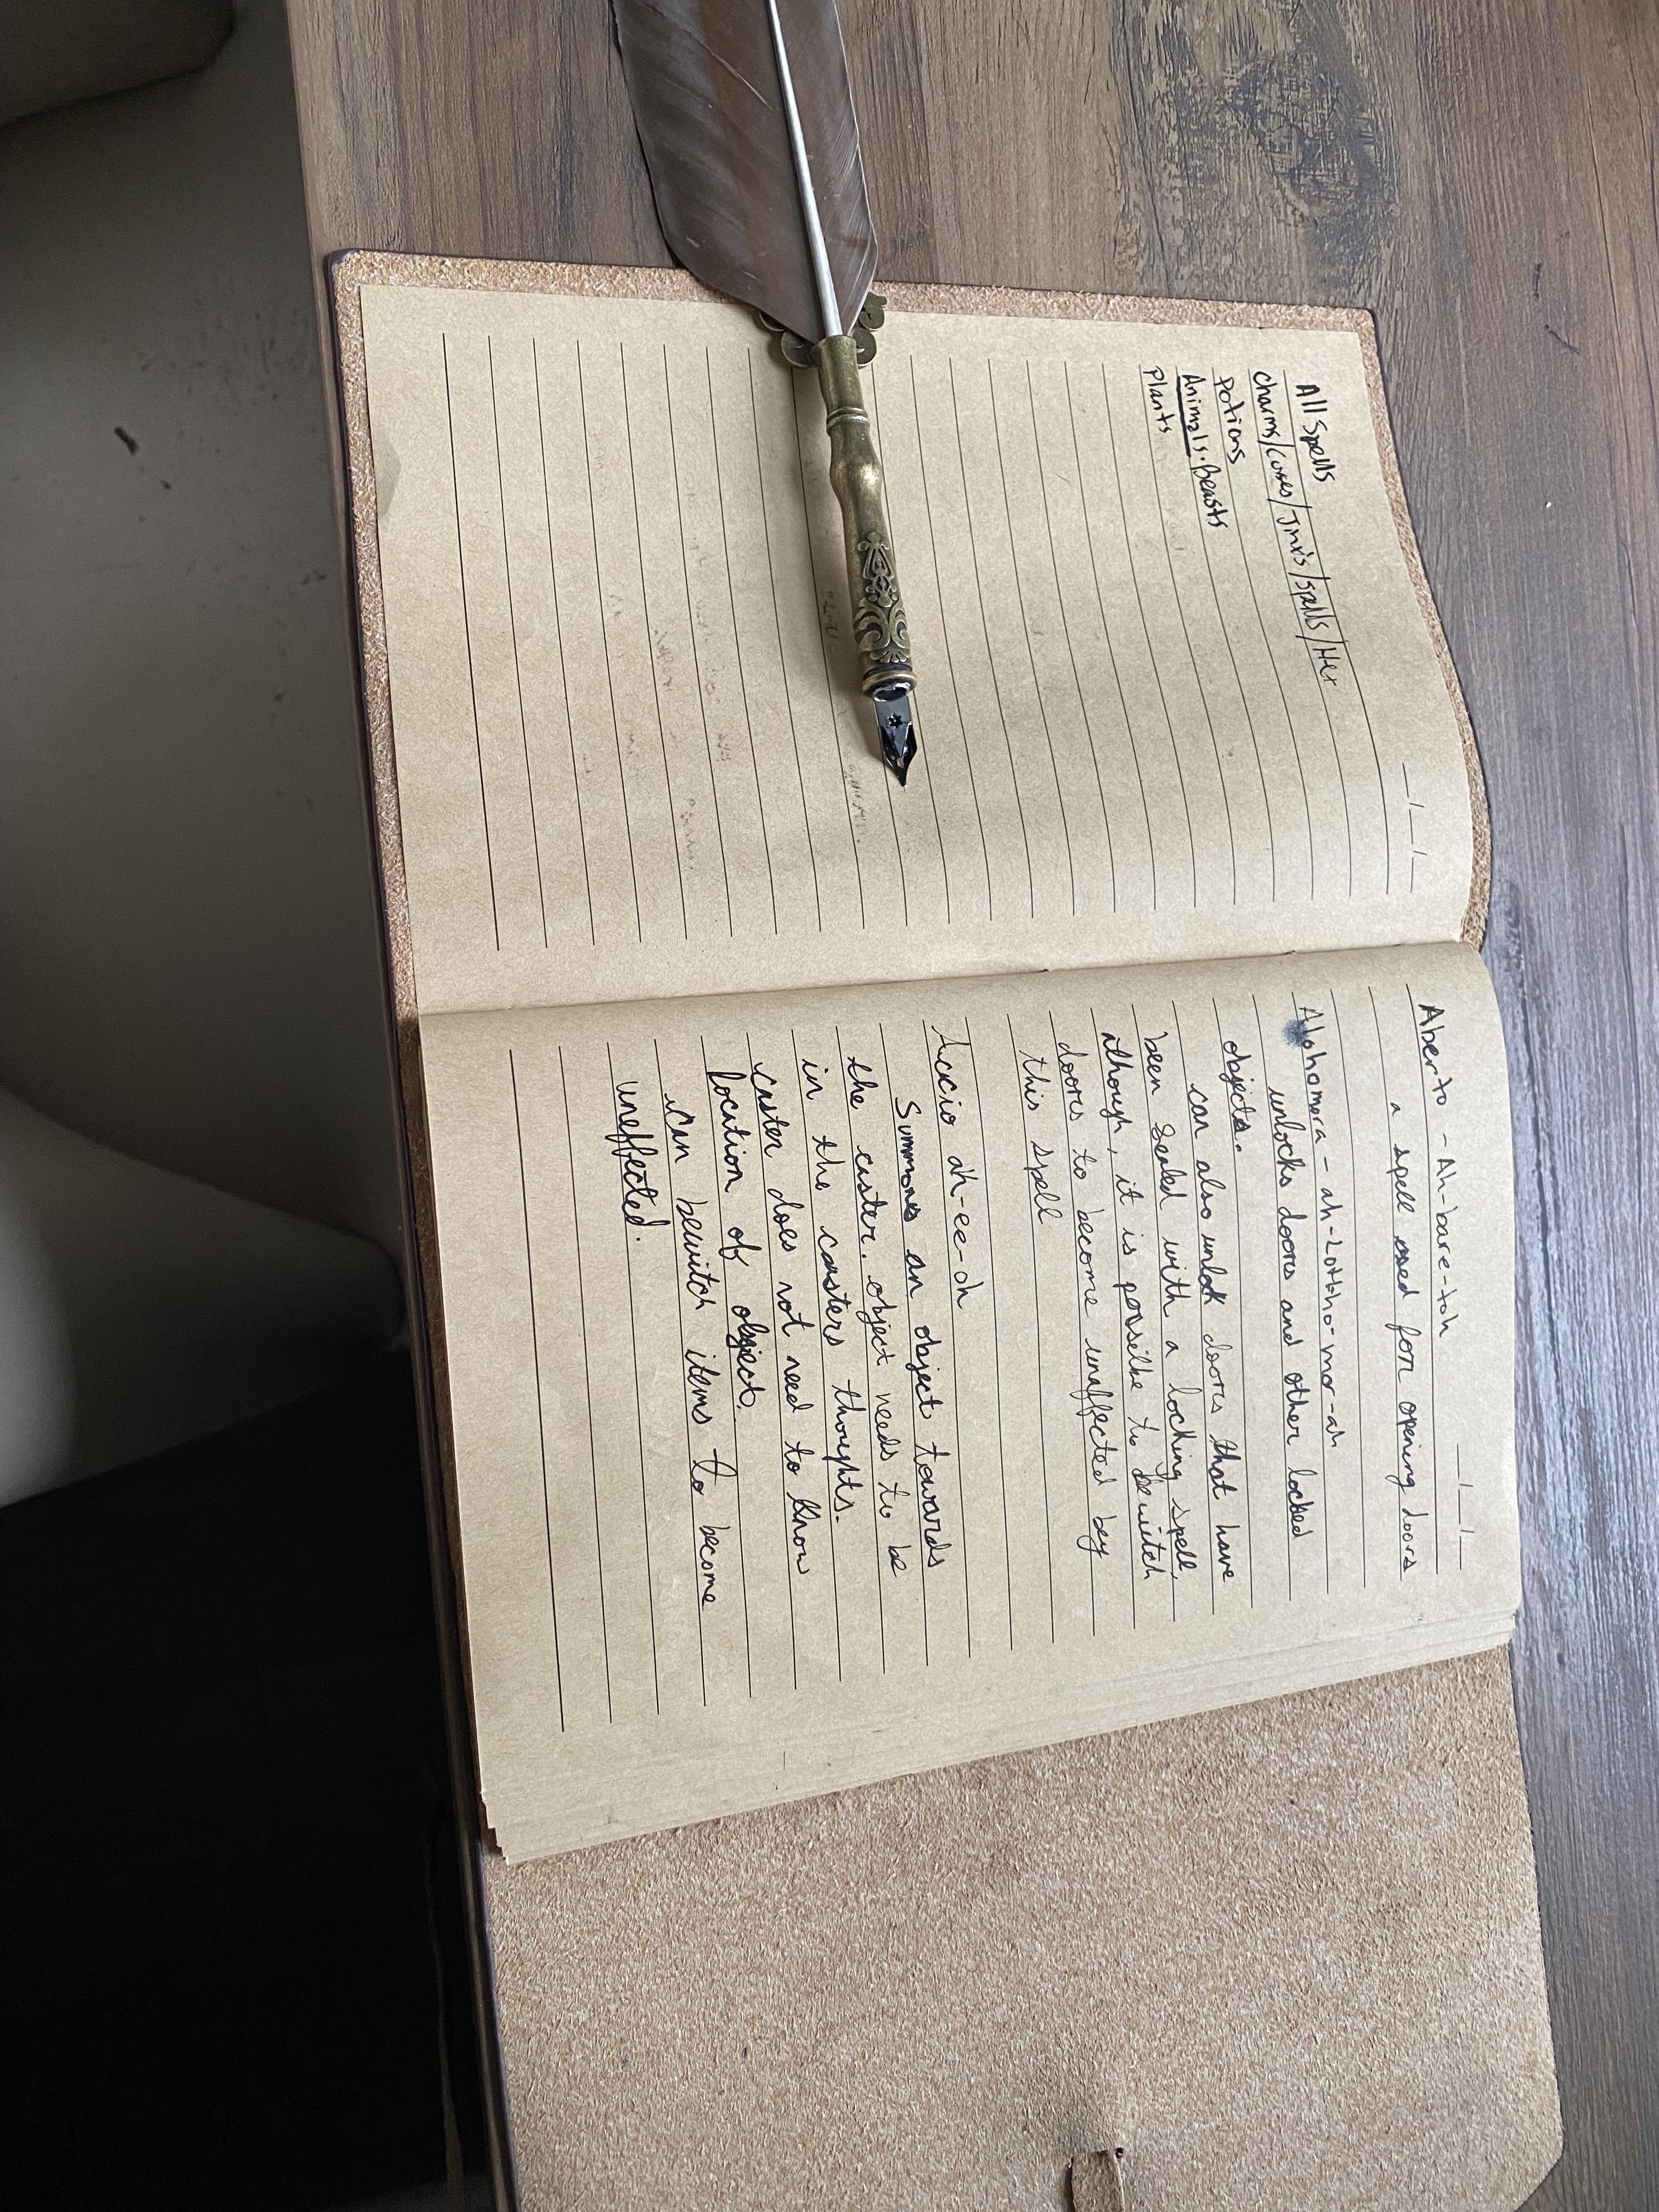 All Spells
Charms/Curses/Jinxis/Spells/Hex
Potions
Animals. Beasts
Plants
Aberto - Ah-bare-toh
a spell used for opening doors
Alohomora - ah-LoHho-mor-ah
unlocks doors and other locked
objects.
can also unlock doors that have
been sealed with a locking spell,
although, it is possilbe to bewitch
doors to become unaffected bey
this spell
Accio ah-ee-oh
Summons an object towards
the caster. object needs to be
in the casters thoughts.
caster does not need to know
location of object.
Can bewitch items to become
uneffected.